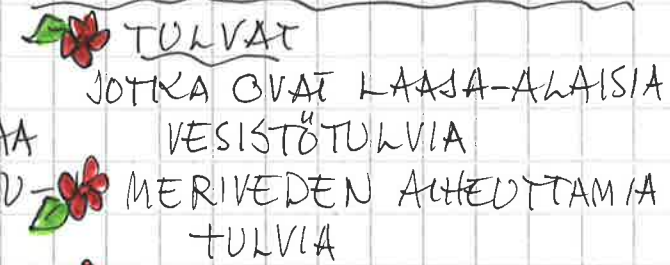 TULVAT
JOTKA OVAT LAAJA-ALAISIA
VESISTÖTULVIA
MERIVEDEN AIHEUTTAMIA
TULVIA